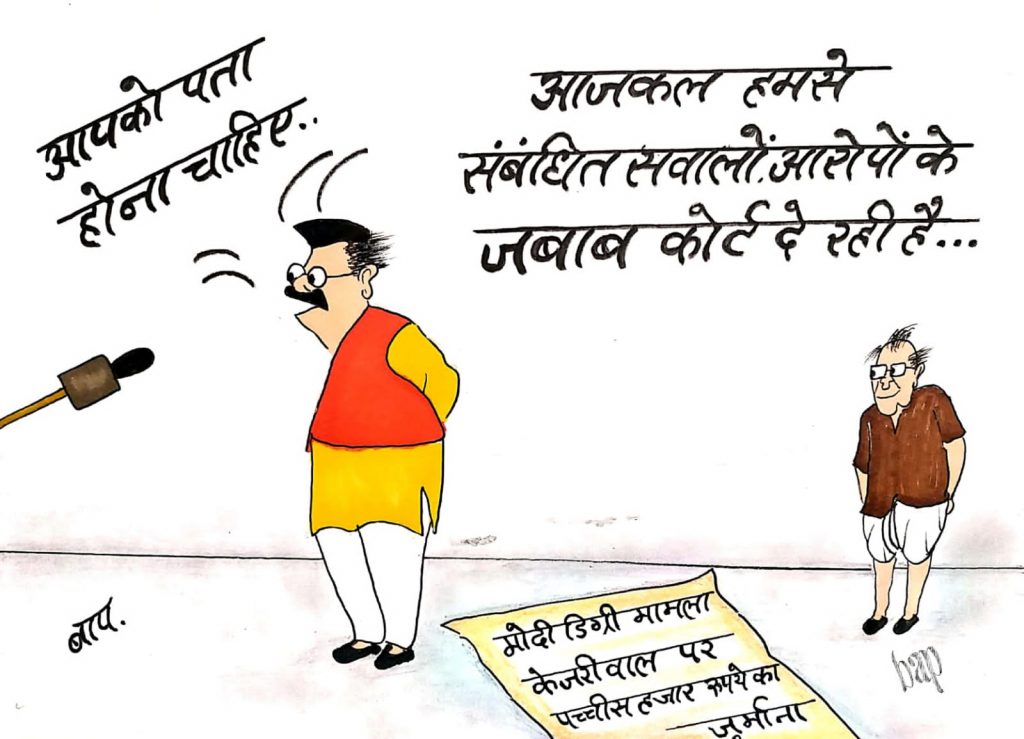 आपको पता
होना चाहिए..
आजकल हमसे
संबंधित सवालों.आरोपों के
जबाब कोर्ट दे रही है...
मोदी डिग्री मामला
केजरीवाल पर
पच्चीस हजार रुपये का
जुर्माना
बाप.
bap